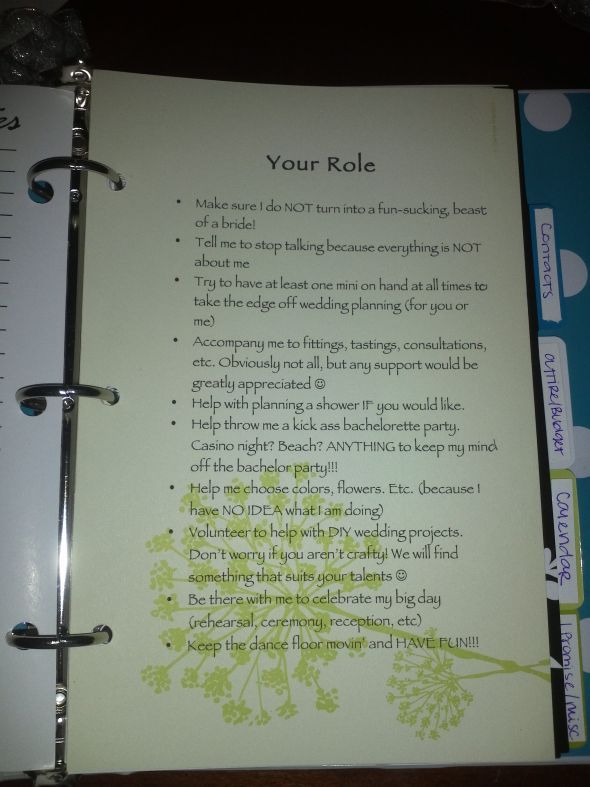 Your Role
• Make sure I do NOT turn into a fun-sucking, beast
of a bride!
• Tell me to stop talking because everything is NOT
about me
• Try to have at least one mini on hand at all times to
take the edge off wedding planning (for you or
me)
• Accompany me to fittings, tastings, consultations,
etc. Obviously not all, but any support would be
greatly appreciated ☺
• Help with planning a shower IF you would like.
• Help throw me a kick ass bachelorette party.
Casino night? Beach? ANYTHING to keep my mind
off the bachelor party!!!
• Help me choose colors, flowers. Etc. (because I
have NO IDEA what I am doing)
• Volunteer to help with DIY wedding projects.
Don't worry if you aren't crafty! We will find
something that suits your talents ☺
• Be there with me to celebrate my big day
(rehearsal, ceremony, reception, etc)
• Keep the dance floor movin' and HAVE FUN!!!
Contacts
Attire/Budget
Calendar
I Promise/misc